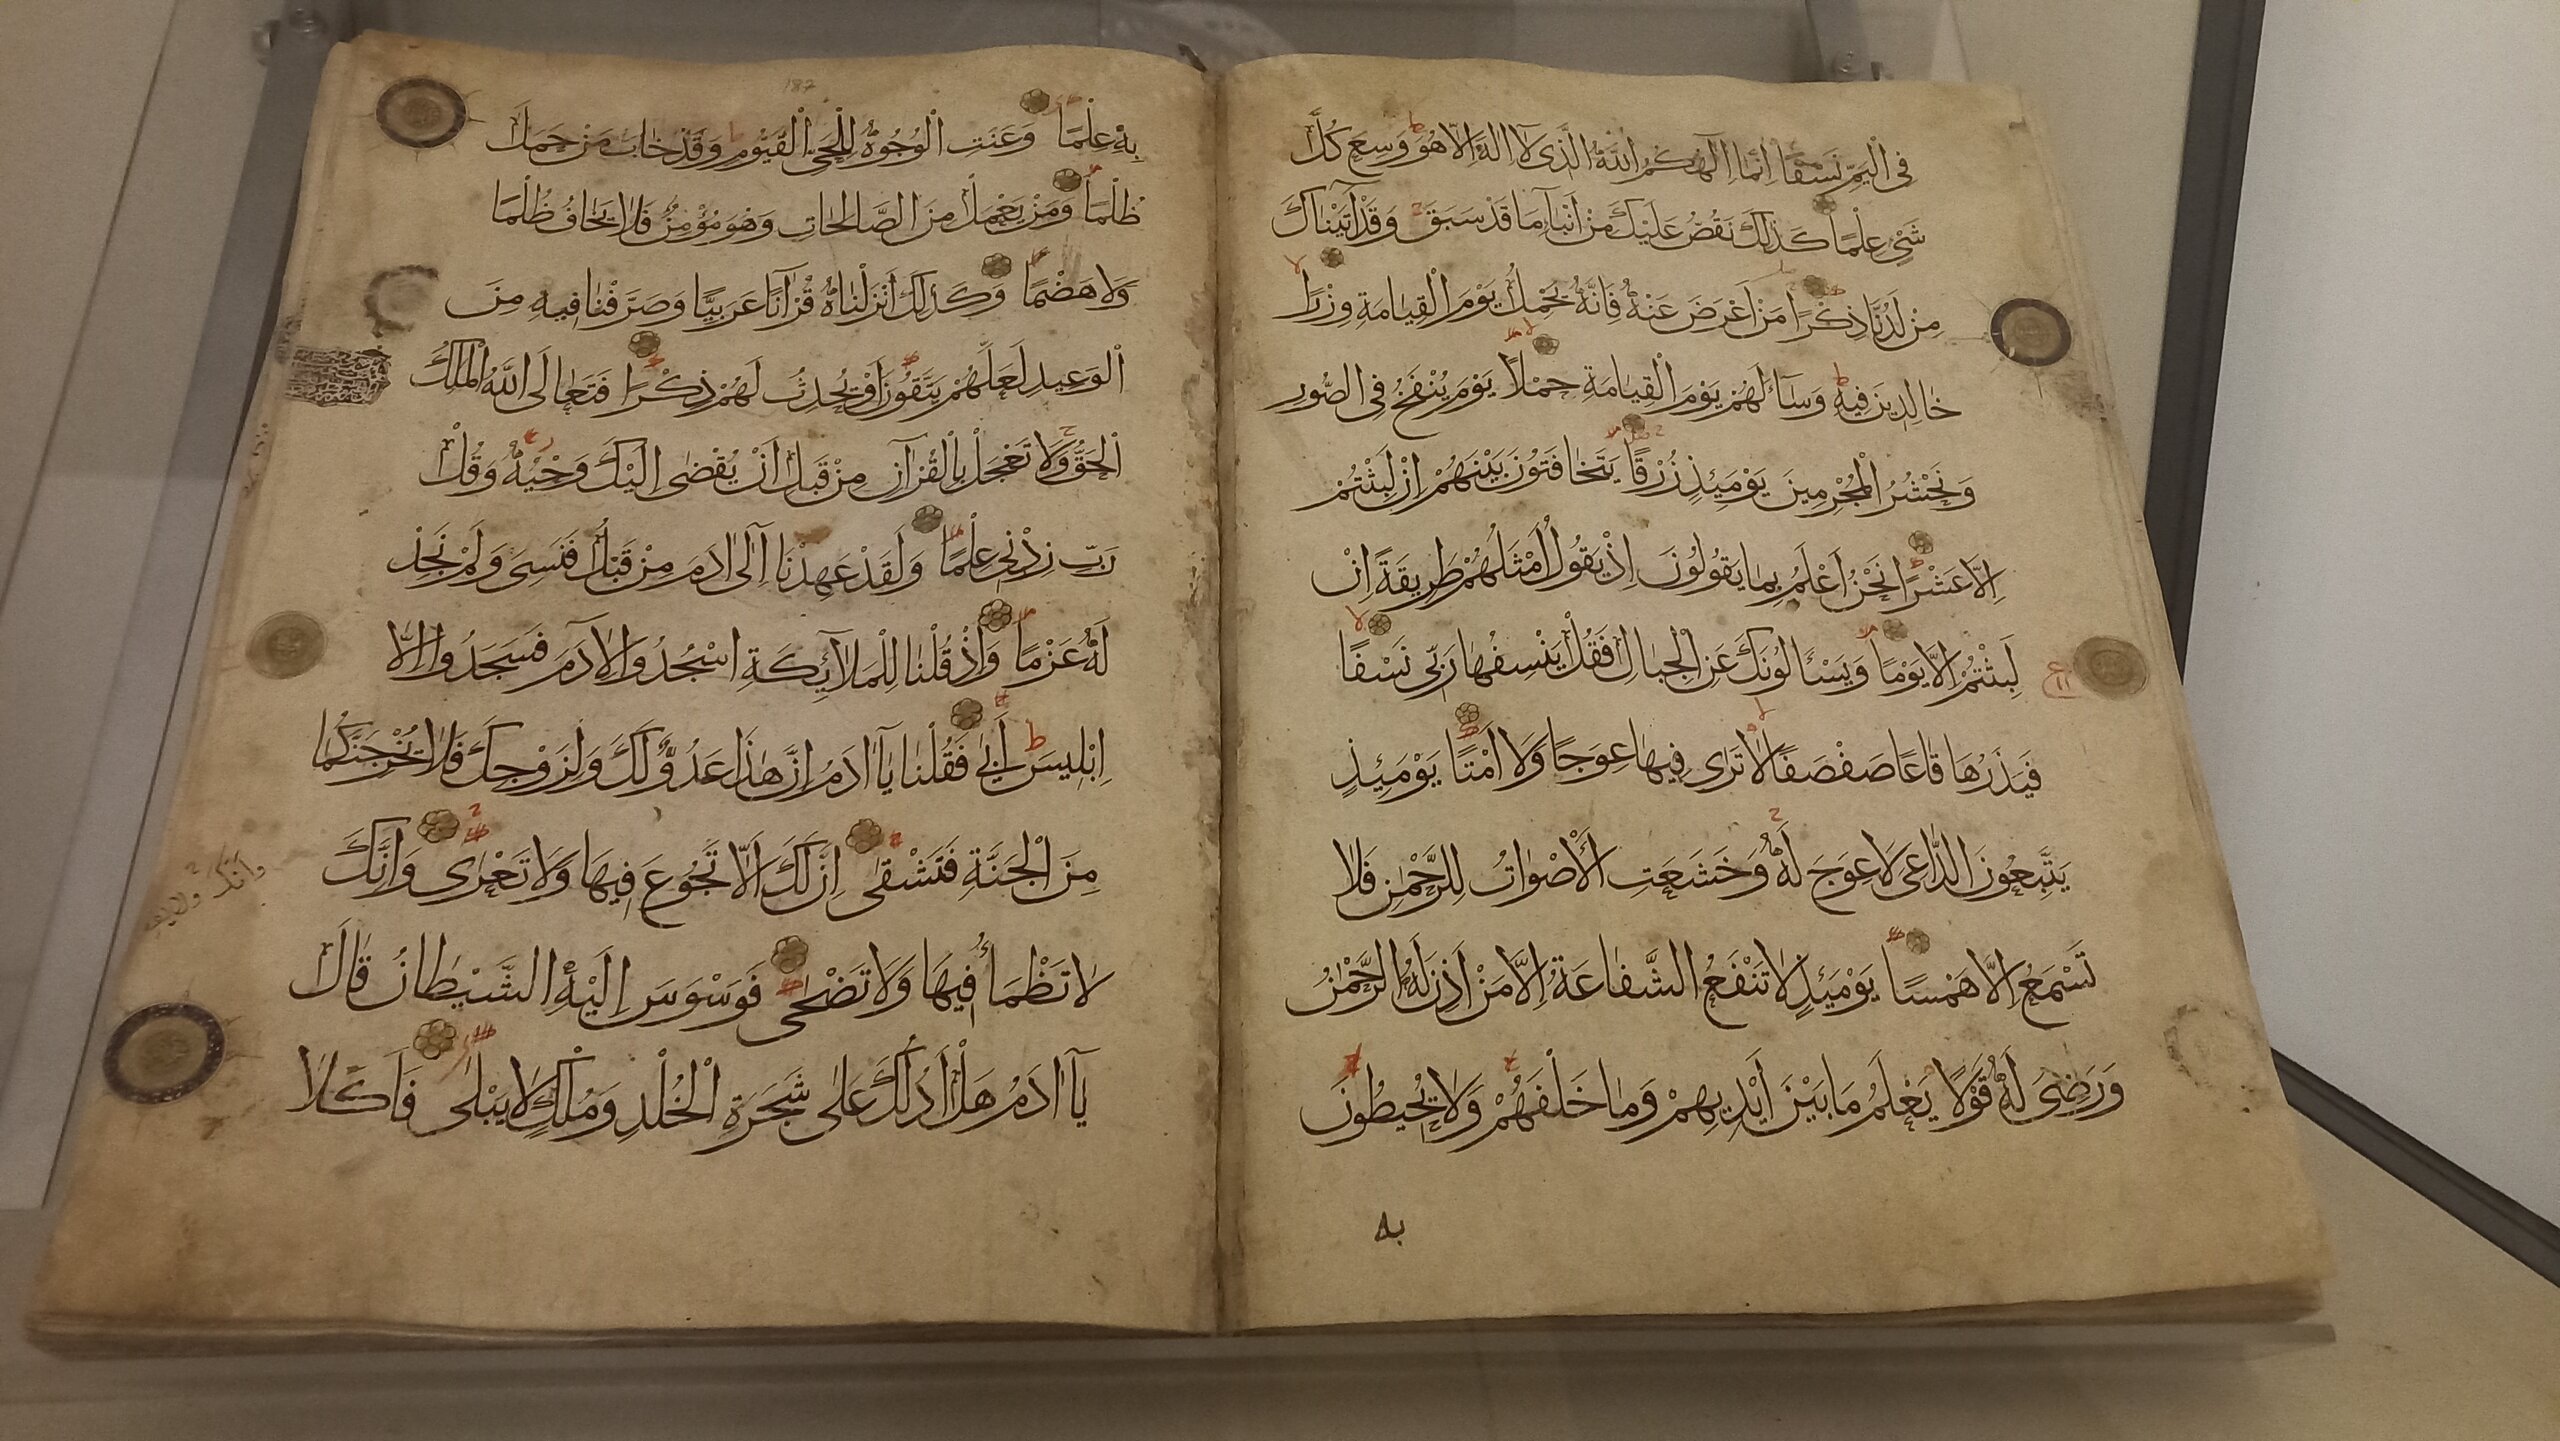 فِى الْيَمِّ نَسْفًا اِنَّمَا اِلٰهُكُمُ اللّٰهُ الَّذِى لَا اِلٰهَ اِلَّا هُوَ وَسِعَ كُلَّ
شَىْءٍ عِلْمًا كَذٰلِكَ نَقُصُّ عَلَيْكَ مِنْ اَنْبَآءِ مَا قَدْ سَبَقَ وَقَدْ اٰتَيْنَاكَ
مِنْ لَدُنَّا ذِكْرًا مَنْ اَعْرَضَ عَنْهُ فَاِنَّهُ يَحْمِلُ يَوْمَ الْقِيَامَةِ وِزْرًا
خَالِدِينَ فِيهِ وَسَآءَ لَهُمْ يَوْمَ الْقِيَامَةِ حِمْلًا يَوْمَ يُنْفَخُ فِى الصُّورِ
وَنَحْشُرُ الْمُجْرِمِينَ يَوْمَئِذٍ زُرْقًا يَتَخَافَتُونَ بَيْنَهُمْ اِنْ لَبِثْتُمْ
اِلَّا عَشْرًا نَحْنُ اَعْلَمُ بِمَا يَقُولُونَ اِذْ يَقُولُ اَمْثَلُهُمْ طَرِيقَةً اِنْ
لَبِثْتُمْ اِلَّا يَوْمًا وَيَسْـَٔالُونَكَ عَنِ الْجِبَالِ فَقُلْ يَنْسِفُهَا رَبِّى نَسْفًا
ع ١١
فَيَذَرُهَا قَاعًا صَفْصَفًا لَا تَرٰى فِيهَا عِوَجًا وَلَا اَمْتًا يَوْمَئِذٍ
يَتَّبِعُونَ الدَّاعِىَ لَا عِوَجَ لَهُ وَخَشَعَتِ الْاَصْوَاتُ لِلرَّحْمٰنِ فَلَا
تَسْمَعُ اِلَّا هَمْسًا يَوْمَئِذٍ لَا تَنْفَعُ الشَّفَاعَةُ اِلَّا مَنْ اَذِنَ لَهُ الرَّحْمٰنُ
وَرَضِىَ لَهُ قَوْلًا يَعْلَمُ مَا بَيْنَ اَيْدِيهِمْ وَمَا خَلْفَهُمْ وَلَا يُحِيطُونَ
به
187
بِهِ عِلْمًا وَعَنَتِ الْوُجُوهُ لِلْحَىِّ الْقَيُّومِ وَقَدْ خَابَ مَنْ حَمَلَ
ظُلْمًا وَمَنْ يَعْمَلْ مِنَ الصَّالِحَاتِ وَهُوَ مُؤْمِنٌ فَلَا يَخَافُ ظُلْمًا
وَلَا هَضْمًا وَكَذٰلِكَ اَنْزَلْنَاهُ قُرْاٰنًا عَرَبِيًّا وَصَرَّفْنَا فِيهِ مِنَ
الْوَعِيدِ لَعَلَّهُمْ يَتَّقُونَ اَوْ يُحْدِثُ لَهُمْ ذِكْرًا فَتَعَالَى اللّٰهُ الْمَلِكُ
الْحَقُّ وَلَا تَعْجَلْ بِالْقُرْآنِ مِنْ قَبْلِ اَنْ يُقْضٰى اِلَيْكَ وَحْيُهُ وَقُلْ
رَبِّ زِدْنِى عِلْمًا وَلَقَدْ عَهِدْنَا اِلٰى اٰدَمَ مِنْ قَبْلُ فَنَسِىَ وَلَمْ نَجِدْ
لَهُ عَزْمًا وَاِذْ قُلْنَا لِلْمَلَآئِكَةِ اسْجُدُوا لِاٰدَمَ فَسَجَدُوا اِلَّا
اِبْلِيسَ اَبٰى فَقُلْنَا يَآ اٰدَمُ اِنَّ هٰذَا عَدُوٌّ لَكَ وَلِزَوْجِكَ فَلَا يُخْرِجَنَّكُمَا
مِنَ الْجَنَّةِ فَتَشْقٰى اِنَّ لَكَ اَلَّا تَجُوعَ فِيهَا وَلَا تَعْرٰى وَاَنَّكَ
لَا تَظْمَأُ فِيهَا وَلَا تَضْحٰى فَوَسْوَسَ اِلَيْهِ الشَّيْطَانُ قَالَ
يَآ اٰدَمُ هَلْ اَدُلُّكَ عَلٰى شَجَرَةِ الْخُلْدِ وَمُلْكٍ لَا يَبْلٰى فَاَكَلَا